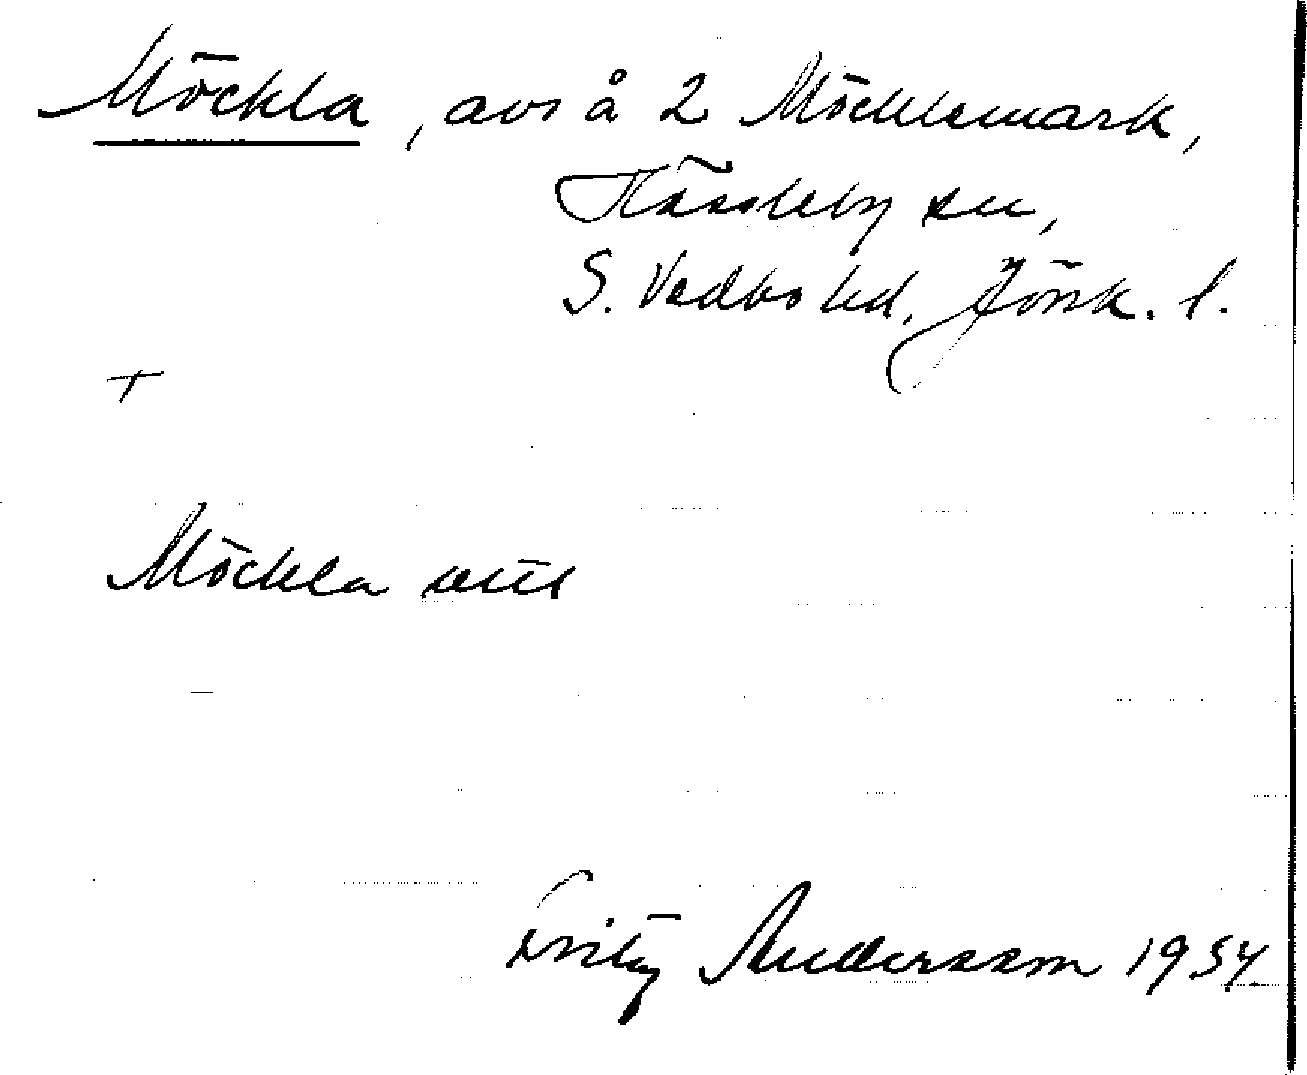 Möckla, avs å 2 Möcklemark,
Hässleby sn,
S. Vedbo hd, Jönk. l.
+
Möckla
Fritz Andersson 1954